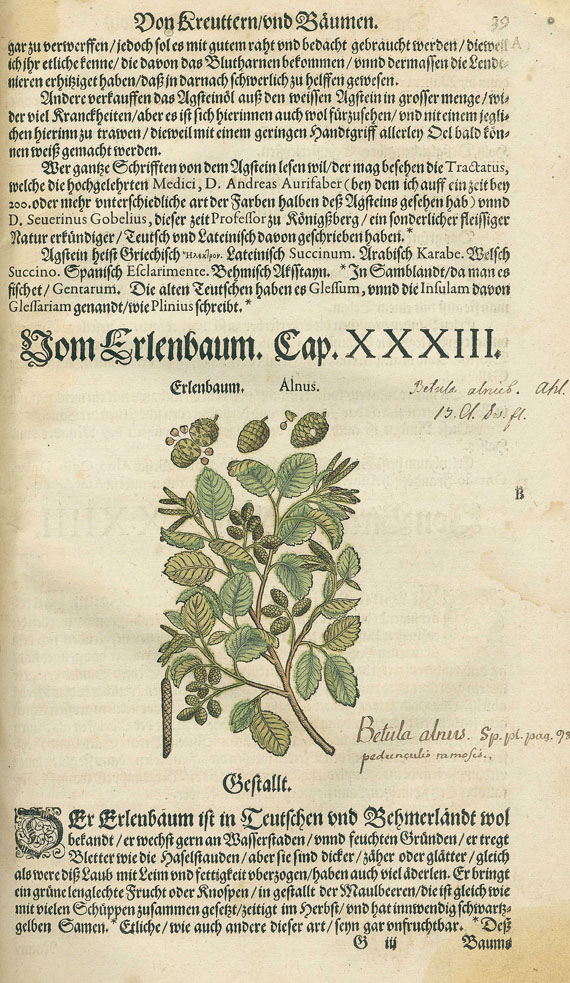 Von Kreuttern/vnd Bäumen. 39
gar zu verwerffen/jedoch sol es mit gutem raht vnd bedacht gebraucht werden/dieweil A
ich jhr etliche kenne/die davon das Blutharnen bekommen/vnnd dermassen die Lend-
nieren erhitziget haben/daß in darnach schwerlich zu helffen gewesen.
Andere verkauffen das Agsteinöl auß den weissen Agstein in grosser menge/wi-
der viel Kranckheiten/aber es ist sich hierinnen auch wol fürzusehen/vnd nit einem jegli-
chen hierinn zu trawen/dieweil mit einem geringen Handtgriff allerley Oel bald kön-
nen weiß gemacht werden.
Wer gantze Schrifften von dem Agstein lesen wil/der mag besehen die Tractatus,
welche die hochgelehrten Medici, D. Andreas Aurifaber (bey dem ich auff ein zeit bey
200. oder mehr vnterschiedliche art der Farben halben deß Agsteins gesehen hab) vnnd
D. Seuerinus Gobelius, dieser zeit Professor zu Königßberg/ein sonderlicher fleissiger
Natur erkündiger/Teutsch vnd Lateinisch davon geschrieben haben.*
Agstein heist Griechisch Lateinisch Succinum. Arabisch Karabe. Welsch
Succino. Spanisch Esclarimente. Behmisch Aksstayn. * In Samblandt/da man es
fischet/Gentarum. Die alten Teutschen haben es Glessum, vnnd die Insulam davon
Glessariam genandt/wie Plinius schreibt.*
Vom Erlenbaum. Cap. XXXIII.
Erlenbaum. Alnus.
Betula alnus.
B
Betula alnus. Sp. pl. pag. 98
pedunculis ramosis.
Gestallt.
DEr Erlenbaum ist in Teutschen vnd Behmerlandt wol
bekandt/er wechst gern an Wasserstaden/vnnd feuchten Gründen/er tregt
Bletter wie die Haselstauden/aber sie sind dicker/zäher oder glätter/gleich
als were diß Laub mit Leim vnd fettigkeit vberzogen/haben auch viel äderlen. Er bringt
ein grüne lenglechte Frucht oder Knospen/in gestallt der Maulbeeren/die ist gleich wie
mit vielen Schüppen zusammen gesetzt/zeitigt im Herbst/vnd hat innwendig schwartz-
gelben Samen.* Etliche/wie auch andere dieser art/seyn gar vnfruchtbar. * Deß
G iij Baums